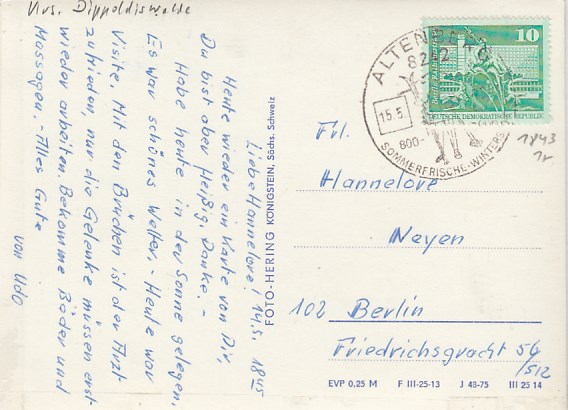 Krs. Dippoldiswalde
Liebe Hannelore! 14.5. 1845
Heute wieder ein Karte von Dir,
Du bist aber fleißig. Danke. -
Habe heute in der Sonne gelegen,
Es war schönes Wetter. - Heute war
Visite. Mit den Brüchen ist der Arzt
zufrieden, nur die Gelenke müssen erst
wieder arbeiten. Bekomme Bäder und
Massagen. - Alles Gute
von Udo
FOTO-HERING KÖNIGSTEIN, Sächs. Schweiz
10
DEUTSCHE DEMOKRATISCHE REPUBLIK
ALTENBERG
8242
15.5.
800-
SOMMERFRISCHE-WINTERS
1843
1r
Frl.
Hannelore
Neyen
102 Berlin
Friedrichsgracht 56
/512
EVP 0,25 M F III-25-13 J 48-75 III 25 14